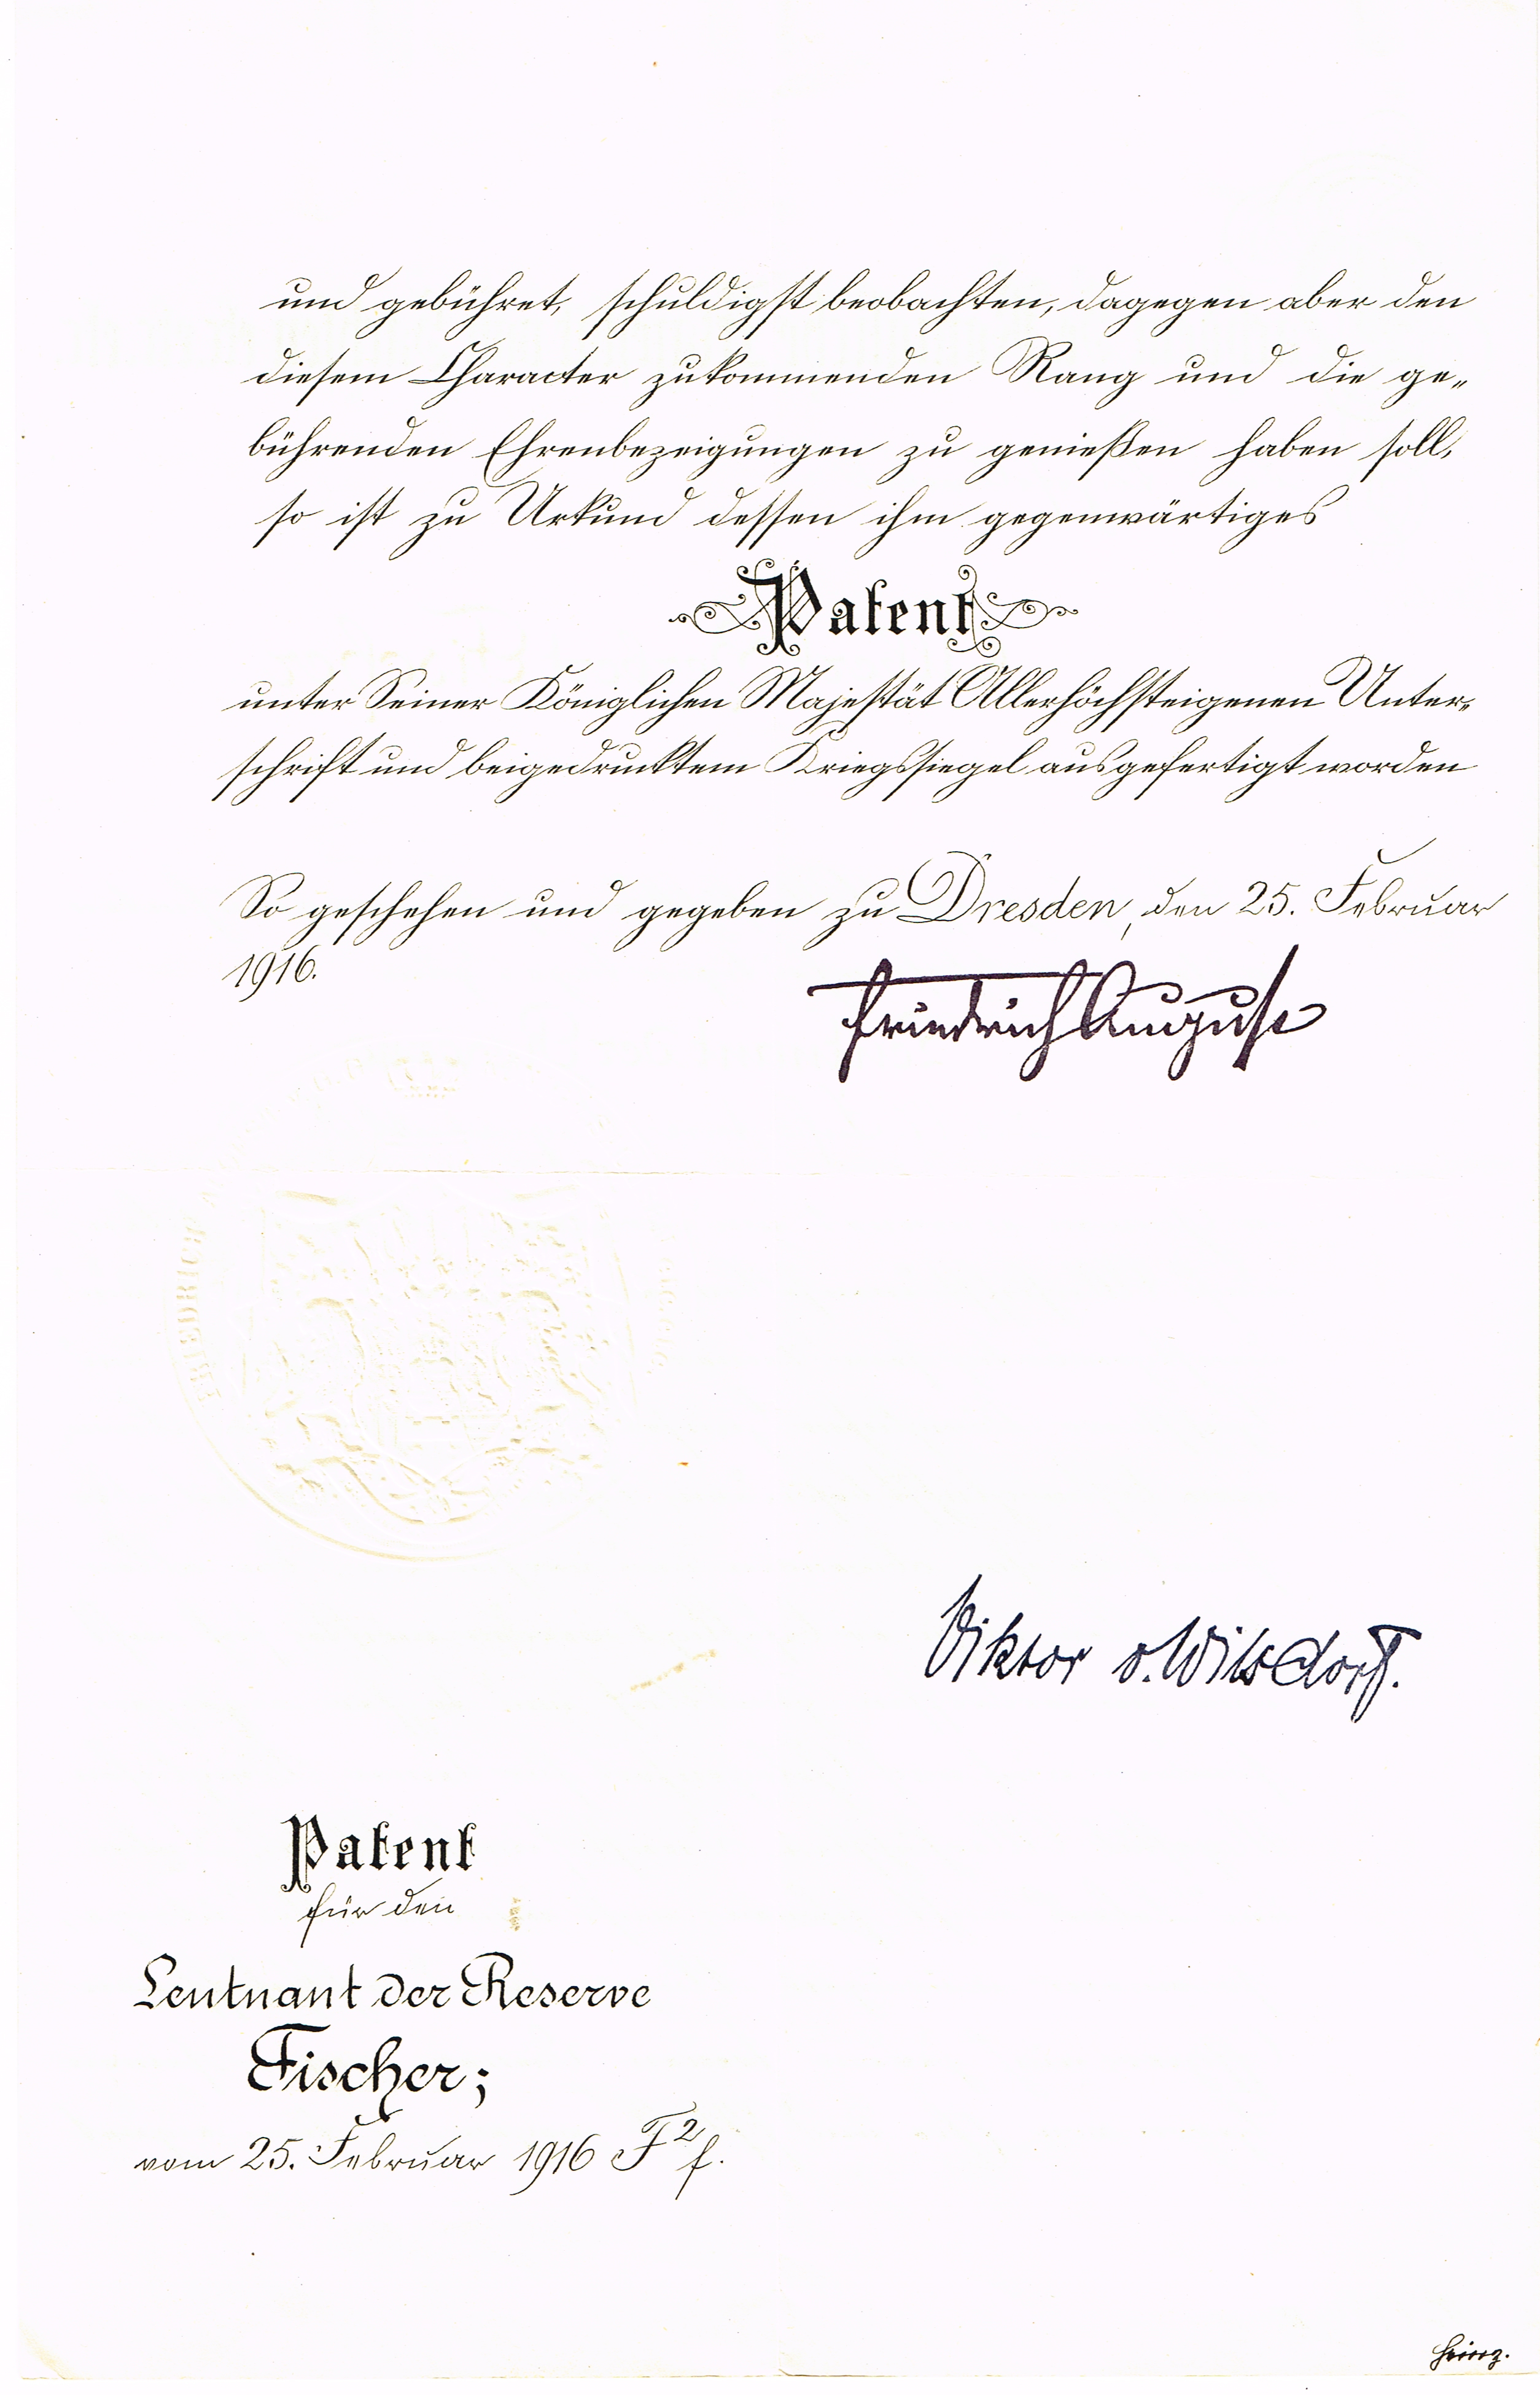 und gebühret, schuldigst beobachten, dagegen aber den
diesem Character zukommenden Rang und die ge-
bührenden Ehrenbezeigungen zu genießen haben soll,
so ist zu Urkund dessen ihm gegenwärtiges
Patent
unter Seiner Königlichen Majestät Allerhöchsteigenen Unter-
schrift und beigedrucktem Kriegssiegel ausgefertigt worden
So geschehen und gegeben zu Dresden, den 25. Februar
1916.
Friedrich August
FRIEDRICH
Viktor v. Wilsdorf.
Patent
für den
Leutnant der Reserve
Fischer;
vom 25. Februar 1916 F² f.